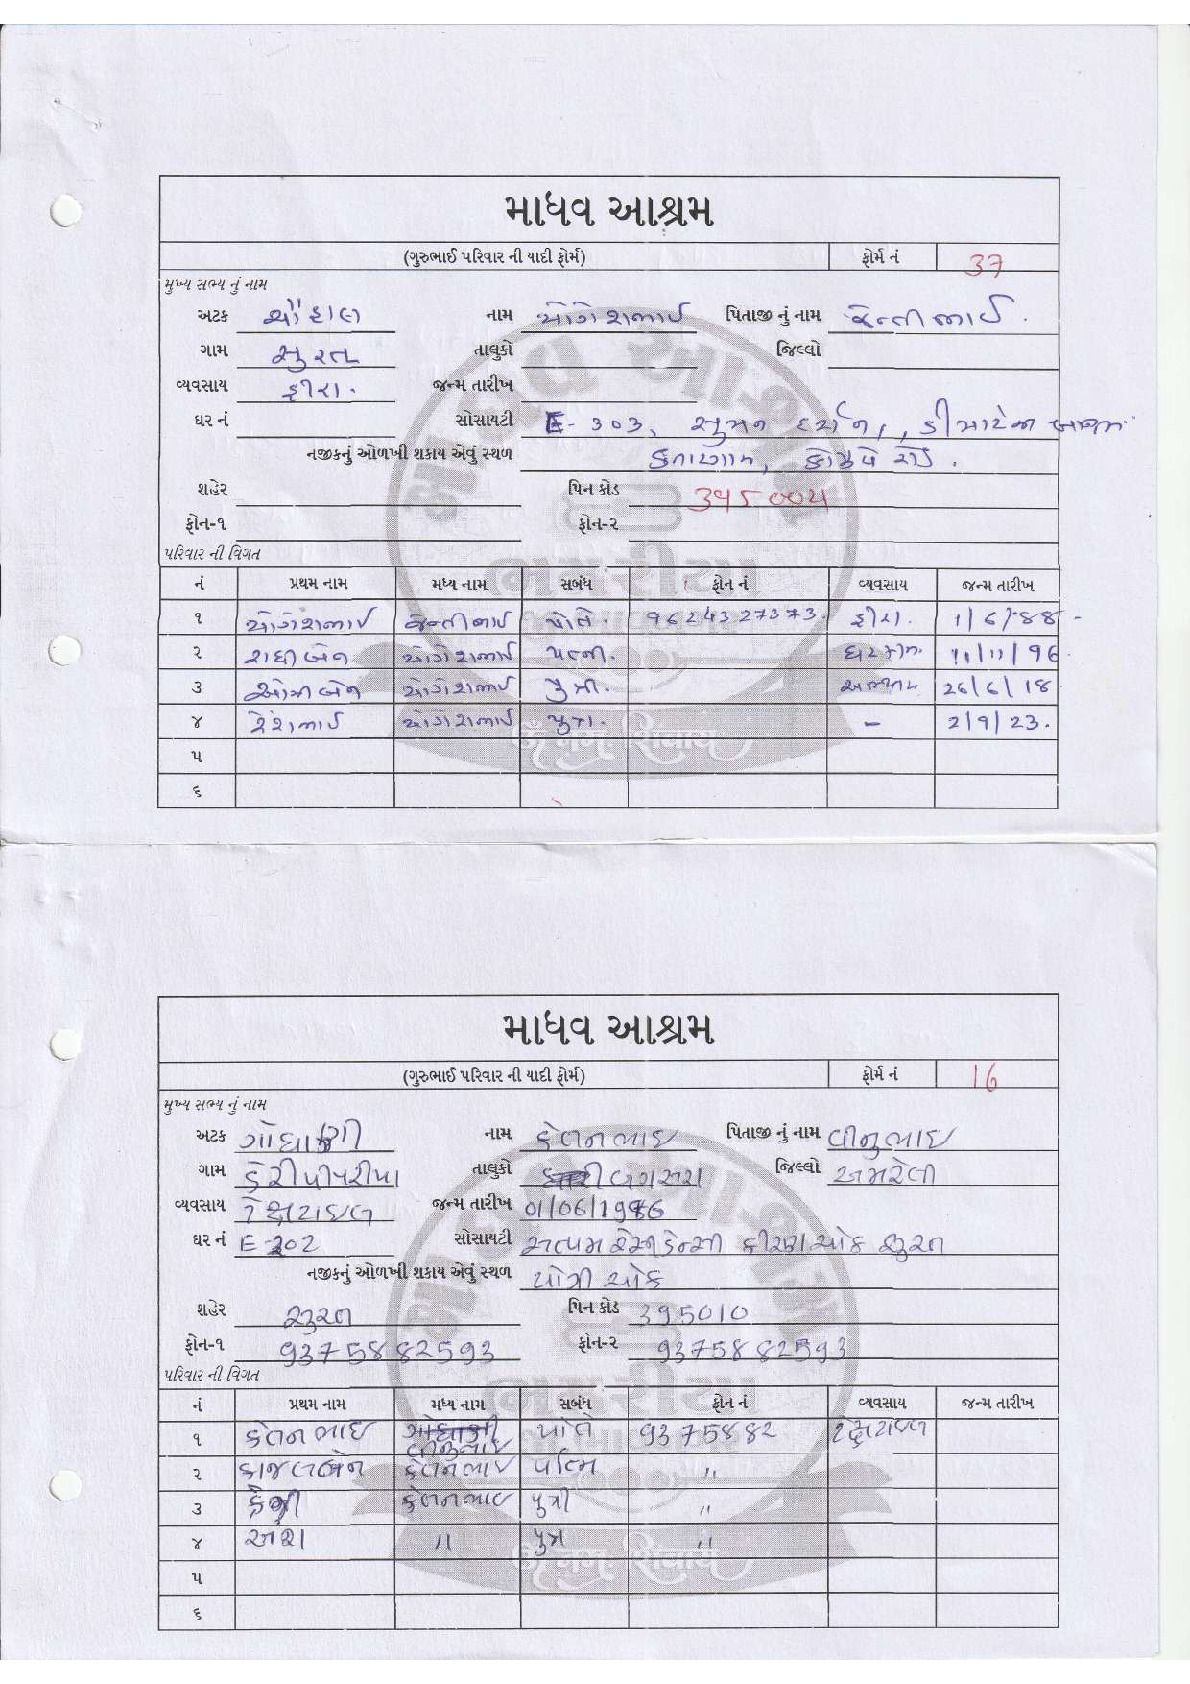 માધવ આશ્રમ
(ગુરુભાઈ પરિવાર ની યાદી ફોર્મ) ફોર્મ નં 37
મુખ્ય સભ્ય નું નામ
અટક ચૌહાણ નામ યોગેશભાઈ પિતાજી નું નામ જેન્તીભાઈ.
ગામ સુરત તાલુકો જિલ્લો
વ્યવસાય હીરા. જન્મ તારીખ
ઘર નં સોસાયટી E-303, સુમન દર્શન, ડીમાર્ટની બાજુમાં
નજીકનું ઓળખી શકાય એવું સ્થળ કતારગામ, કોઝવે રોડ.
શહેર પિન કોડ 395004
ફોન-૧ ફોન-૨
પરિવાર ની વિગત
નં પ્રથમ નામ મધ્ય નામ સબંધ ફોન નં વ્યવસાય જન્મ તારીખ
૧ યોગેશભાઈ જેન્તીભાઈ પોતે. 9624327373. હીરા. 1/6/88-
૨ રાધીબેન યોગેશભાઈ પત્ની. ઘરકામ. 11/11/96.
૩ યોગેશભાઈ પુત્રી. અભ્યાસ 26/6/18
૪ યોગેશભાઈ પુત્ર. - 2/9/23.
૫
૬
માધવ આશ્રમ
(ગુરુભાઈ પરિવાર ની યાદી ફોર્મ) ફોર્મ નં 16
મુખ્ય સભ્ય નું નામ
અટક ગોધાણી નામ કેતનભાઇ પિતાજી નું નામ વીનુભાઇ
ગામ ડેરીપીપરીયા તાલુકો બગસરા જિલ્લો અમરેલી
વ્યવસાય ટેક્ષટાઇલ જન્મ તારીખ 01/06/1986
ઘર નં E-202 સોસાયટી સત્યમ રેસીડેન્સી કીરણચોક સુરત
નજીકનું ઓળખી શકાય એવું સ્થળ યોગી ચોક
શહેર સુરત પિન કોડ 395010
ફોન-૧ 9375882593 ફોન-૨ 9375882593
પરિવાર ની વિગત
નં પ્રથમ નામ મધ્ય નામ સબંધ ફોન નં વ્યવસાય જન્મ તારીખ
૧ કેતનભાઇ વીનુભાઇ પોતે 9375882 ટેક્ષટાઇલ
૨ કાજલબેન કેતનભાઇ પત્નિ "
૩ કેતનભાઇ પુત્રી "
૪ અંશ " પુત્ર "
૫
૬